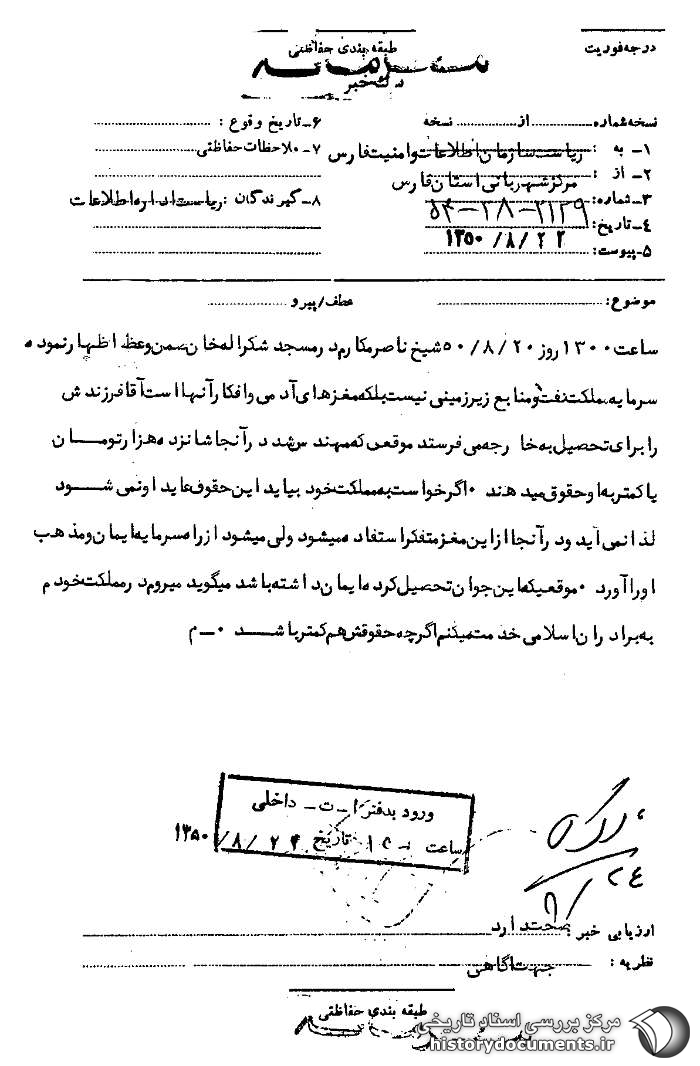 درجه فوریت
طبقه بندی حفاظتی
خبر
نسخه شماره .......... از .......... نسخه
۱ـ به : ریاست سازمان اطلاعات و امنیت فارس
۲ـ از : مرکز شهربانی استان فارس
۳ـ شماره: ۲۱۳۹-۳۸-۵۴
۴ـ تاریخ: ۱۳۵۰/۸/۲۲
۵ـ پیوست:
۶ـ تاریخ وقوع :
۷ـ ملاحظات حفاظتی
۸ـ گیرندگان : ریاست اداره اطلاعات
موضوع:
عطف/پیرو
ساعت ۱۳۰۰ روز ۵۰/۸/۲۰ شیخ ناصر مکارم در مسجد شکراله خان ضمن وعظ اظهار نموده
سرمایه مملکت نفت و منابع زیرزمینی نیست بلکه مغزهای آدمی و افکار آنها است آقا فرزندش
را برای تحصیل به خارجه می فرستد موقعی که مهندس شد در آنجا شانزده هزار تومان
یا کمتر به او حقوق میدهند ۰ اگر خواست به مملکت خود بیاید این حقوق عاید او نمی شود
لذا نمی آید و در آنجا از این مغز متفکر استفاده میشود ولی میشود از راه سرمایه ایمان و مذهب
او را آورد ۰ موقعیکه این جوان تحصیل کرده ایمان داشته باشد میگوید میروم در مملکت خودم
به برادران اسلامی خدمت میکنم اگرچه حقوقش هم کمتر باشد ۰ ـ م
ورود بدفتر ا ـ ت ـ داخلی
ساعت تاریخ ۱۳۵۰/۸/۲۴
۸/۲۴
ارزیابی خبر : صحت دارد
نظریه : جهت آگاهی
طبقه بندی حفاظتی
مرکز بررسی اسناد تاریخی
historydocuments.ir